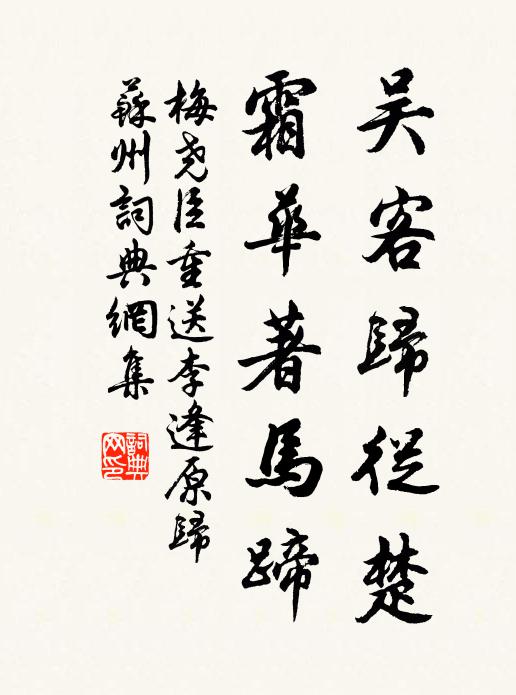 吴客歸從楚
霜華著馬蹄
梅尧臣重送李逢原歸
蘇州詞典網集
詞典网印